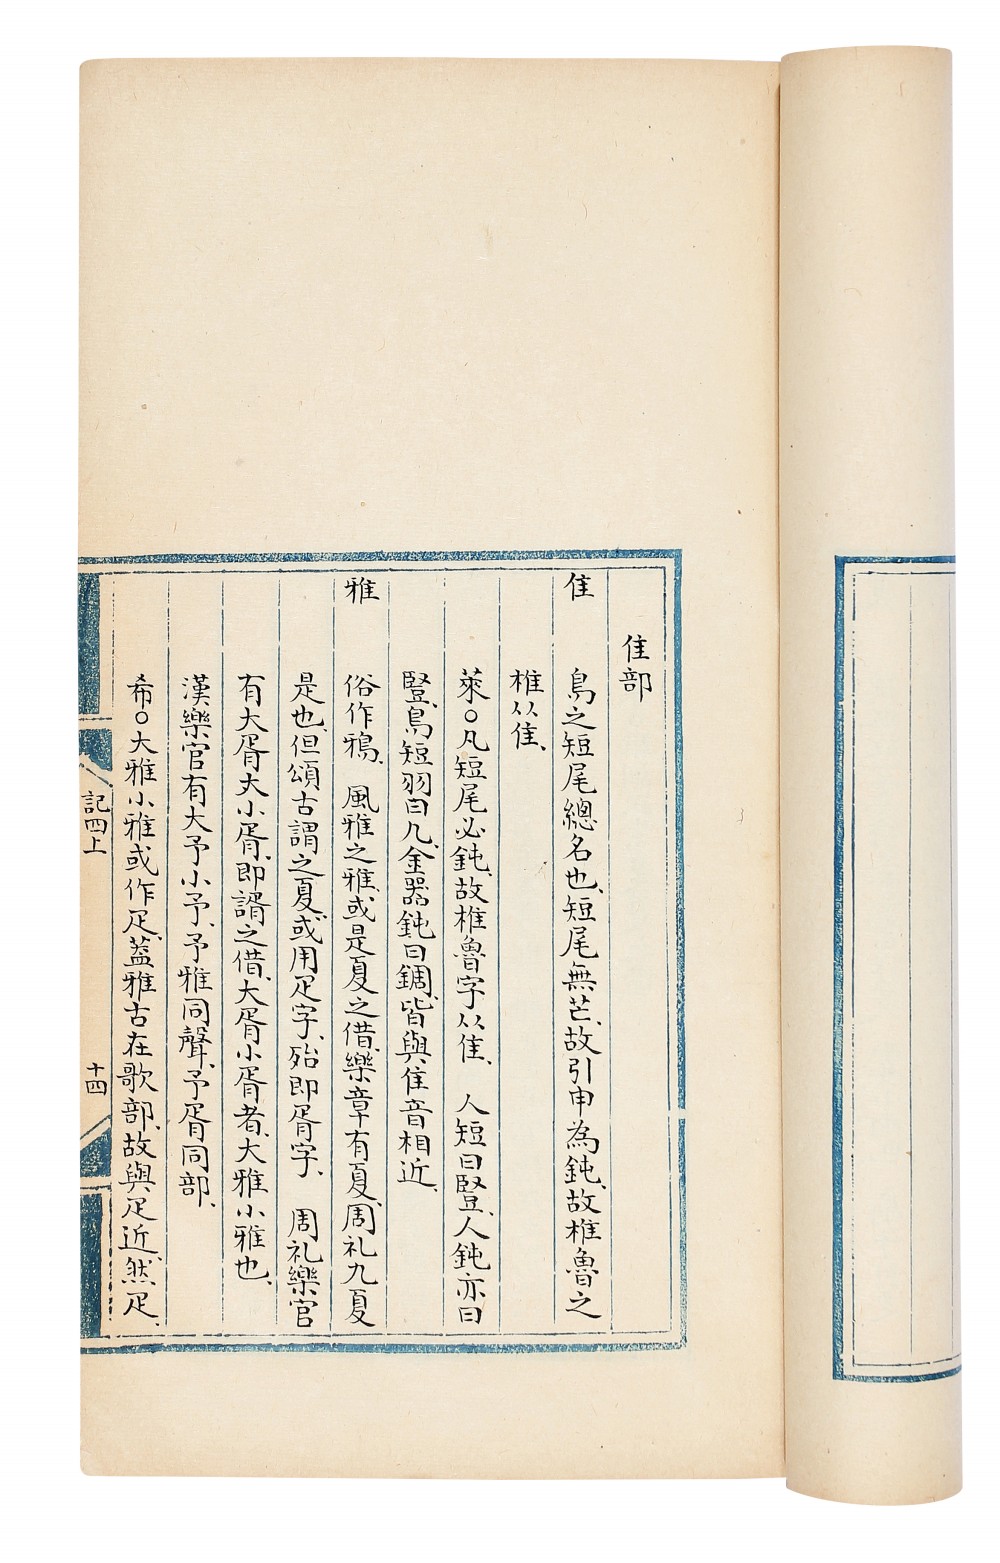 隹部
隹　鳥之短尾總名也、短尾無芒、故引申為鈍、故椎魯之
椎从隹、
萊○凡短尾必鈍、故椎魯字从隹、　人短曰豎、人鈍亦曰
豎、鳥短羽曰几、金器鈍曰錭、皆與隹音相近、
雅　俗作鴉、　風雅之雅、或是夏之借、樂章有夏、周礼九夏
是也、但頌古謂之夏、或用疋字、殆即胥字、　周礼樂官
有大胥大小胥、即諝之借、大胥小胥者、大雅小雅也、
漢樂官有大予小予、予雅同聲、予胥同部、
希○大雅小雅或作疋、蓋雅古在歌部、故與疋近、然疋、
記四上
十四